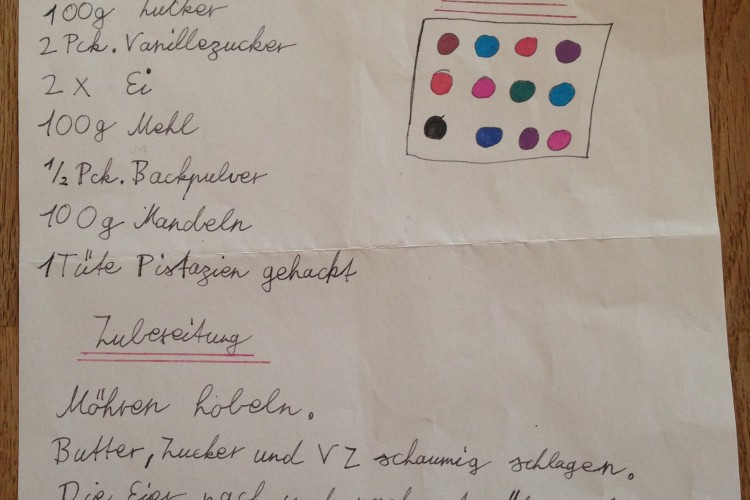 100g Zucker
2 Pck. Vanillezucker
2 x Ei
100g Mehl
1/2 Pck. Backpulver
100g Mandeln
1 Tüte Pistazien gehackt
Zubereitung
Möhren hobeln.
Butter, Zucker und VZ schaumig schlagen.
Die Eier nach und nach